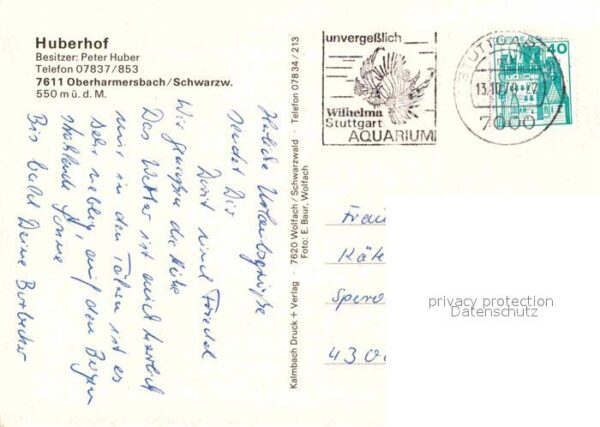 Huberhof
Besitzer: Peter Huber
Telefon 07837/853
7611 Oberharmersbach/Schwarzw.
550 m ü. d. M.
unvergeßlich
Wilhelma
Stuttgart
AQUARIUM
STUTTGART
13.10.
7000
40
Kalmbach Druck + Verlag · 7620 Wolfach/Schwarzwald · Telefon 07834/213
Foto: E. Baur, Wolfach
Herzliche Urlaubsgrüße
sendet Dir
und Friedel
Wir genießen die Ruhe
Das Wetter ist auch herrlich
nur in den Tälern ist es
sehr neblig, auf den Bergen
strahlende Sonne
Bis bald Deine
Frau
Käte
43
privacy protection
Datenschutz